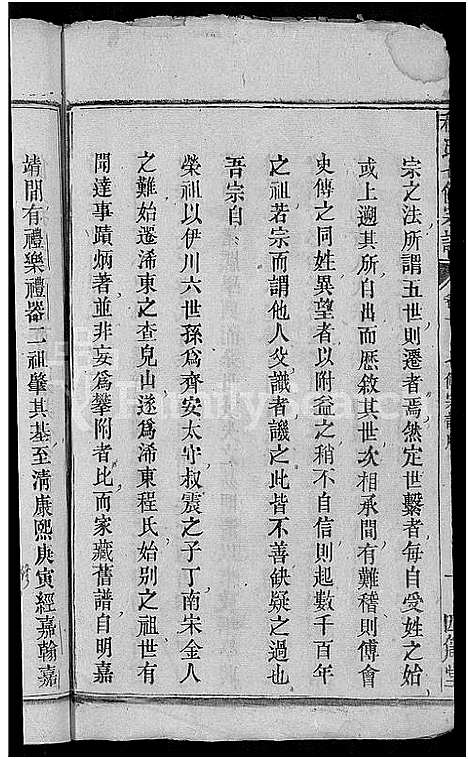 宗之法所謂五世則遷者焉然定世繫者每自受姓之始
或上遡其所自出而歷敘其世次相承間有難稽則傅會
史傳之同姓異望者以附益之稍不自信則起數千百年
之祖若宗而謂他人父識者譏之此皆不善缺疑之過也
吾宗自
榮祖以伊川六世孫為齊安太守叔震之子丁南宋金人
之難始遷浠東之查兒山遂為浠東程氏始別之祖世有
聞達事蹟炳著並非妄為攀附者比而家藏舊譜自明嘉
靖間有禮樂禮器二祖肇其基至清康熙庚寅經嘉翰嘉
FamilySearch